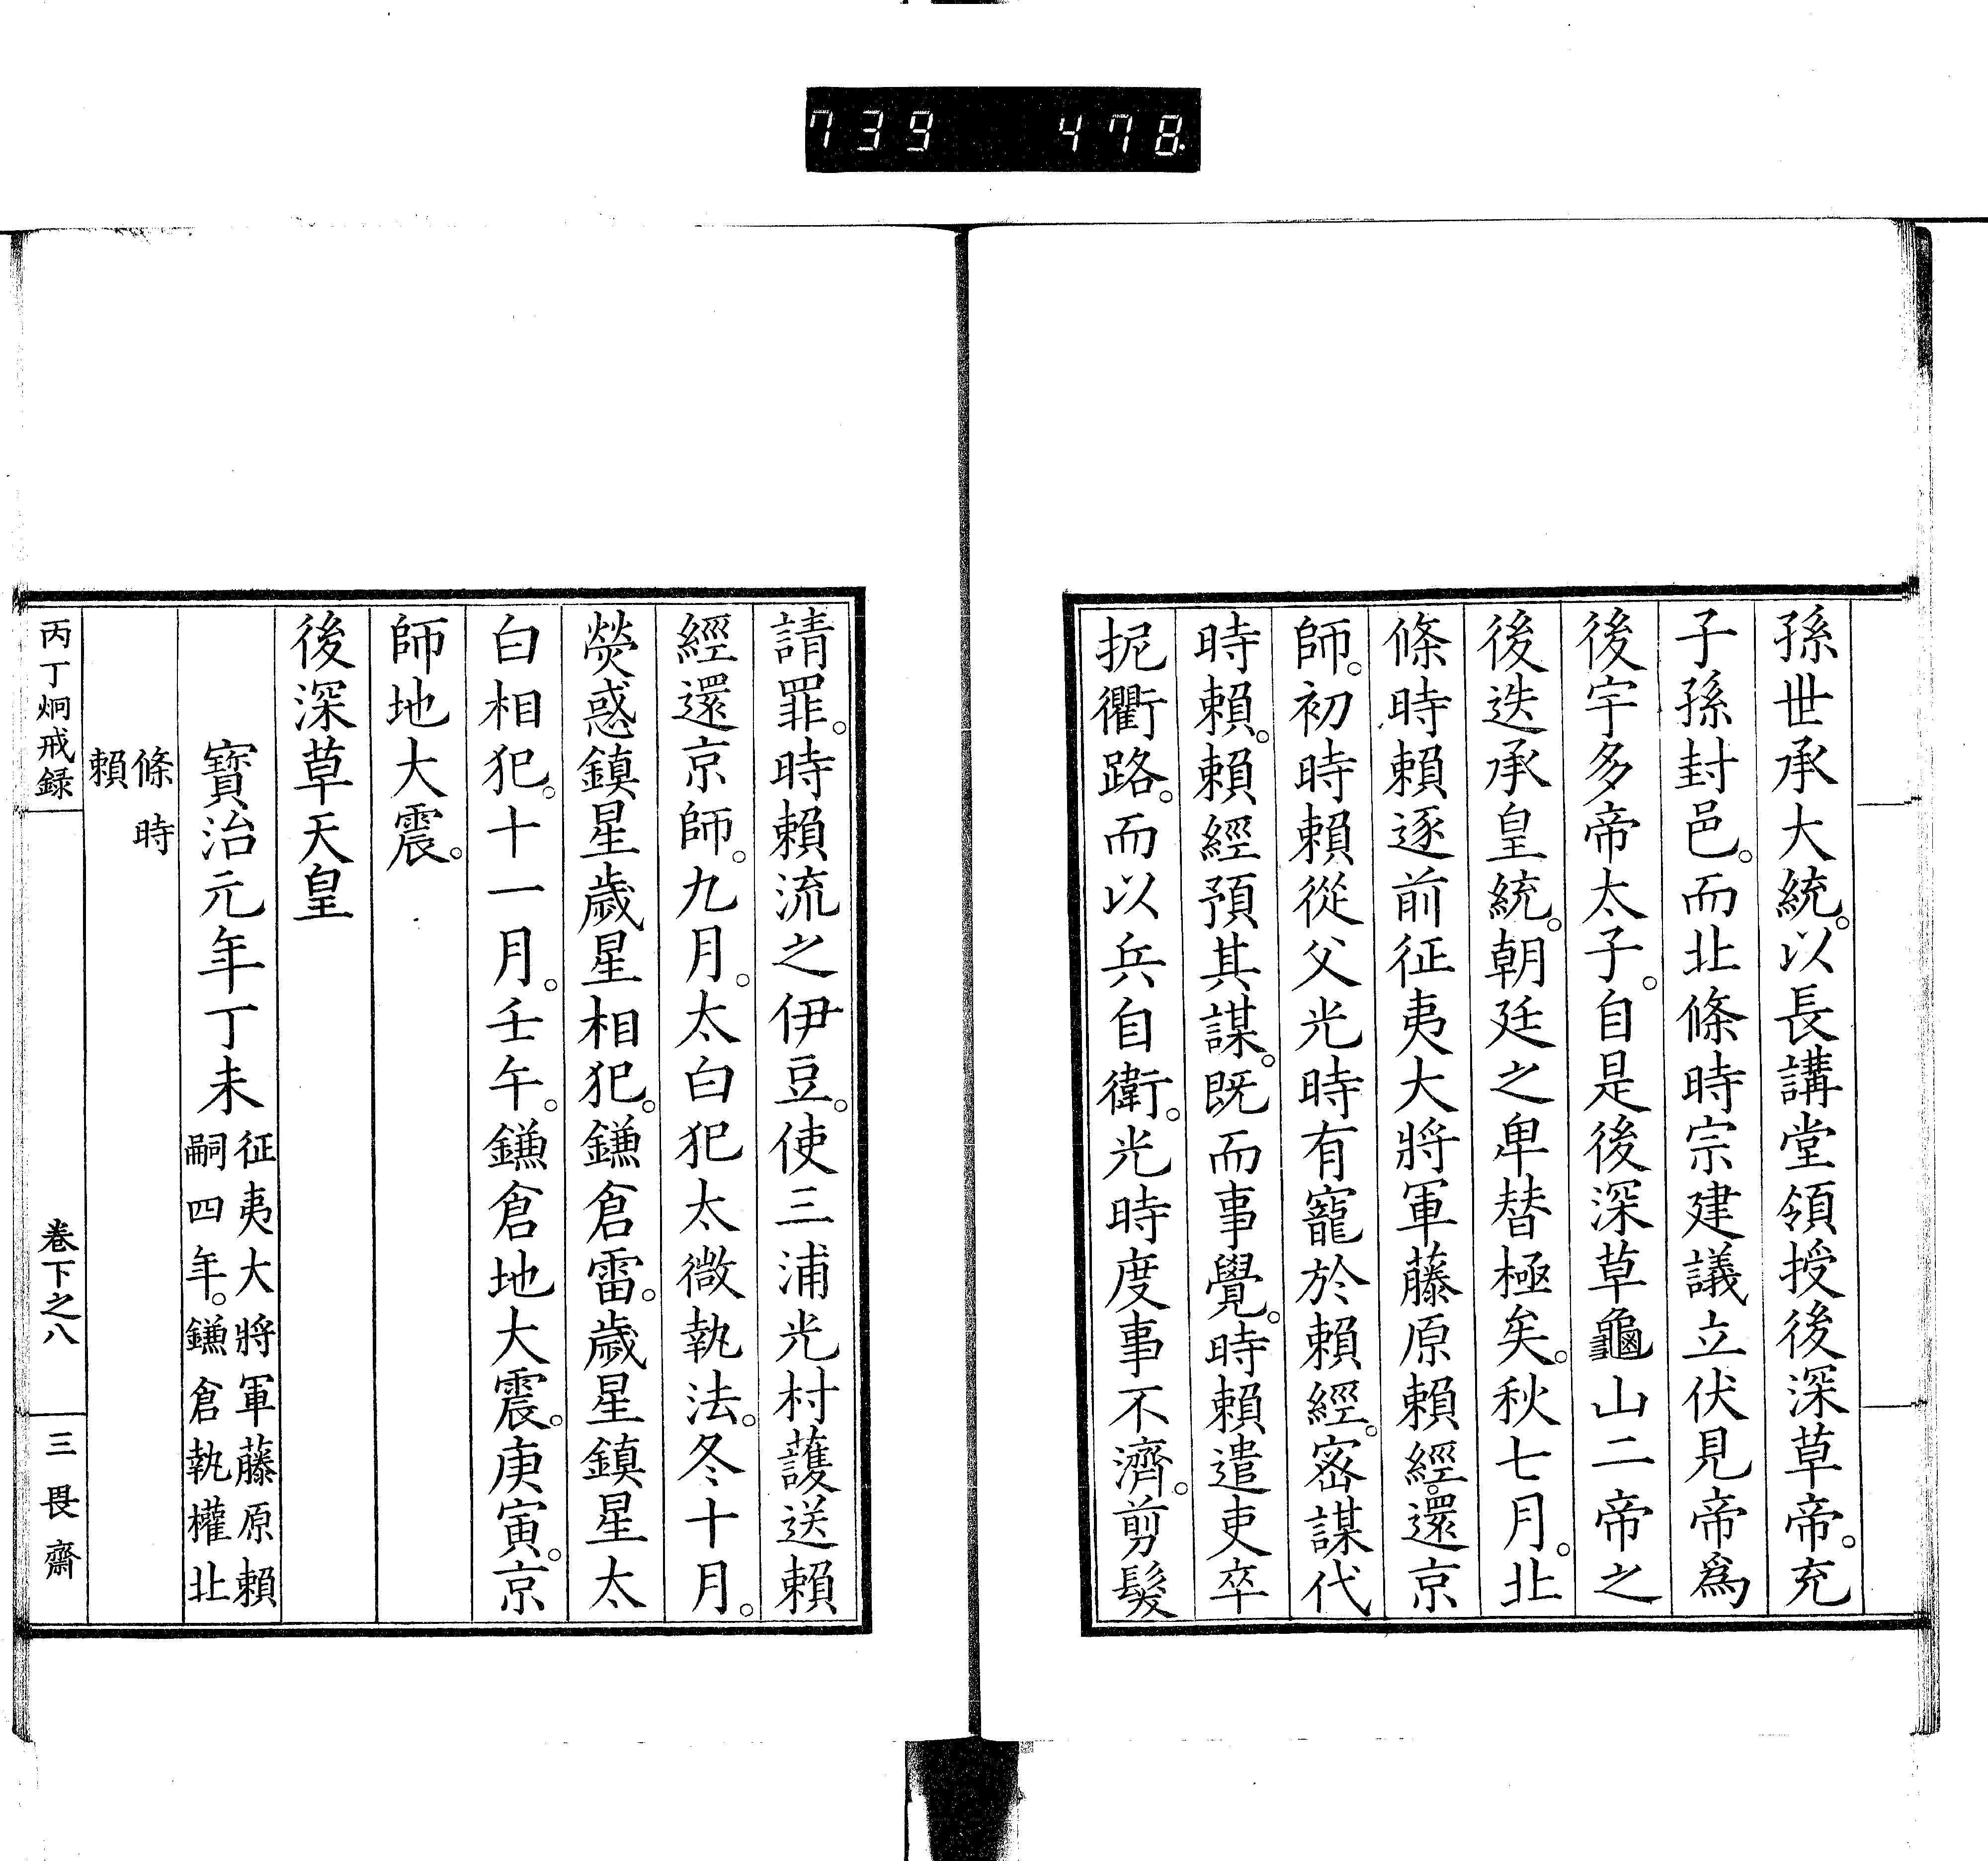 739 478
孫世承大統。以長講堂領授後深草帝。充
子孫封邑。而北條時宗建議立伏見帝爲
後宇多帝太子。自是後深草龜山二帝之
後迭承皇統。朝廷之卑替極矣。秋七月。北
條時賴逐前征夷大將軍藤原賴經。還京
師。初時賴從父光時有寵於賴經。密謀代
時賴。賴經預其謀。既而事覺。時賴遣吏卒
抳衢路。而以兵自衛。光時度事不濟。剪髮
請罪。時賴流之伊豆。使三浦光村護送賴
經還京師。九月。太白犯太微執法。冬十月。
熒惑鎮星歲星相犯。鎌倉雷。歲星鎮星太
白相犯。十一月。壬午。鎌倉地大震。庚寅。京
師地大震。
後深草天皇
寶治元年丁未
征夷大將軍藤原賴
嗣四年。鎌倉執權北
條時
賴
丙丁炯戒録
卷下之八
三畏齋